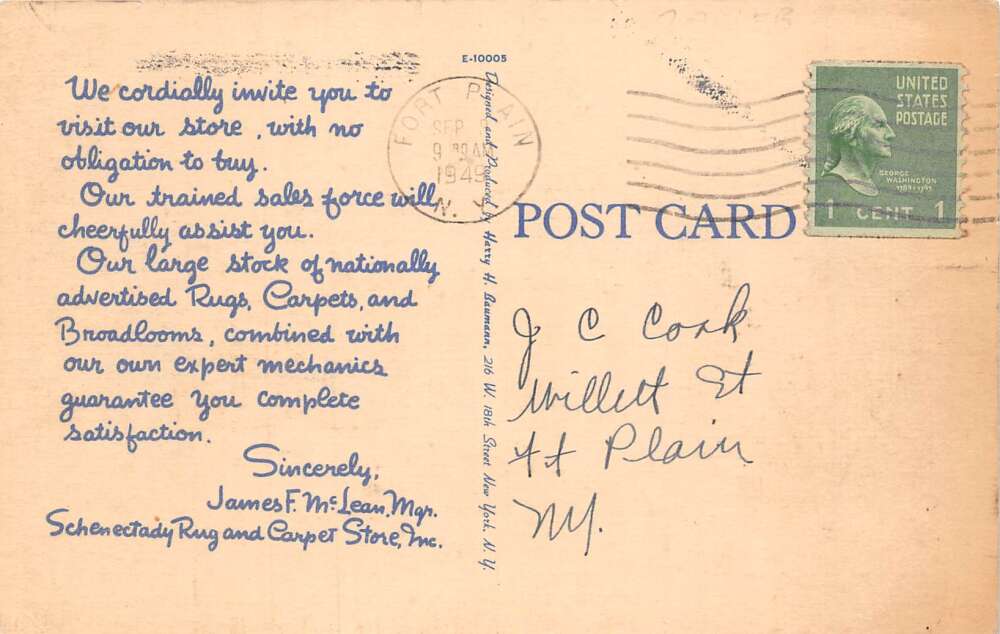 E-10005
We cordially invite you to
visit our store, with no
obligation to buy.
Our trained sales force will
cheerfully assist you.
Our large stock of nationally
advertised Rugs, Carpets, and
Broadlooms, combined with
our own expert mechanics
guarantee you complete
satisfaction.
Sincerely,
James F. McLean, Mgr.
Schenectady Rug and Carpet Store, Inc.
Designed and Produced by Harry H. Baumann, 216 W. 18th Street New York, N. Y.
FORT PLAIN
SEP
9 AM
1949
N. Y.
POST CARD
UNITED
STATES
POSTAGE
GEORGE
WASHINGTON
1789-1797
1 CENT 1
J C Cook
Willett St
Ft Plain
NY.